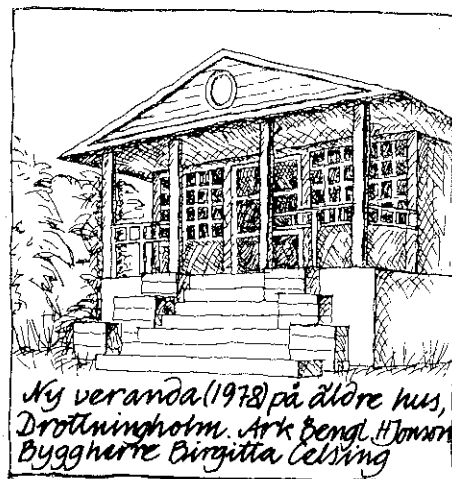 Ny veranda (1978) på äldre hus,
Drottningholm. Ark Bengt H Jonson
Byggherre Birgitta Celsing